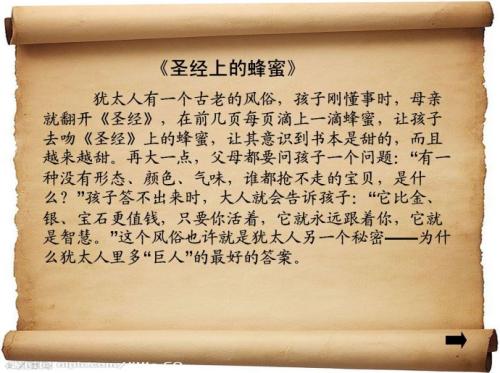 《圣经上的蜂蜜》
犹太人有一个古老的风俗，孩子刚懂事时，母亲
就翻开《圣经》，在前几页每页滴上一滴蜂蜜，让孩子
去吻《圣经》上的蜂蜜，让其意识到书本是甜的，而且
越来越甜。再大一点，父母都要问孩子一个问题：“有一
种没有形态、颜色、气味，谁都抢不走的宝贝，是什
么？”孩子答不出来时，大人就会告诉孩子：“它比金、
银、宝石更值钱，只要你活着，它就永远跟着你，它就
是智慧。”这个风俗也许就是犹太人另一个秘密——为什
么犹太人里多“巨人”的最好的答案。